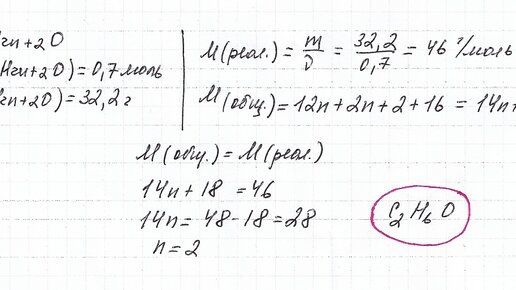 Hгn+2O
Hгn+2O) = 0,7 моль
гn+2O) = 32,2 г
M(реал.) = m/ν = 32,2/0,7 = 46 г/моль
M(общ.) = 12n+2n+2+16 = 14n+
M(общ.) = M(реал.)
14n + 18 = 46
14n = 48 - 18 = 28
n = 2
C₂H₆O